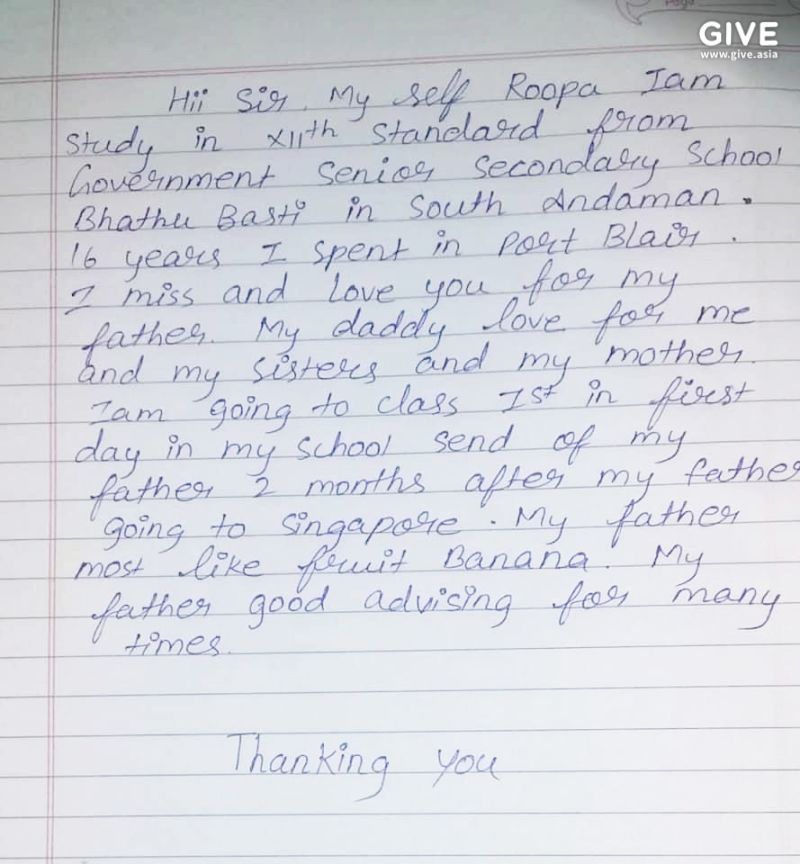 GIVE
www.give.asia
Hii Sir. My self Roopa Iam
study in XIIth standard from
Government senior secondary school
Bhathu Basti in south Andaman.
16 years I spent in Port Blair.
I miss and love you for my
father. My daddy love for me
and my sisters and my mother.
Iam going to class Ist in first
day in my school send of my
father 2 months after my father
going to singapore. My father
most like fruit Banana. My
father good advising for many
times.
Thanking you